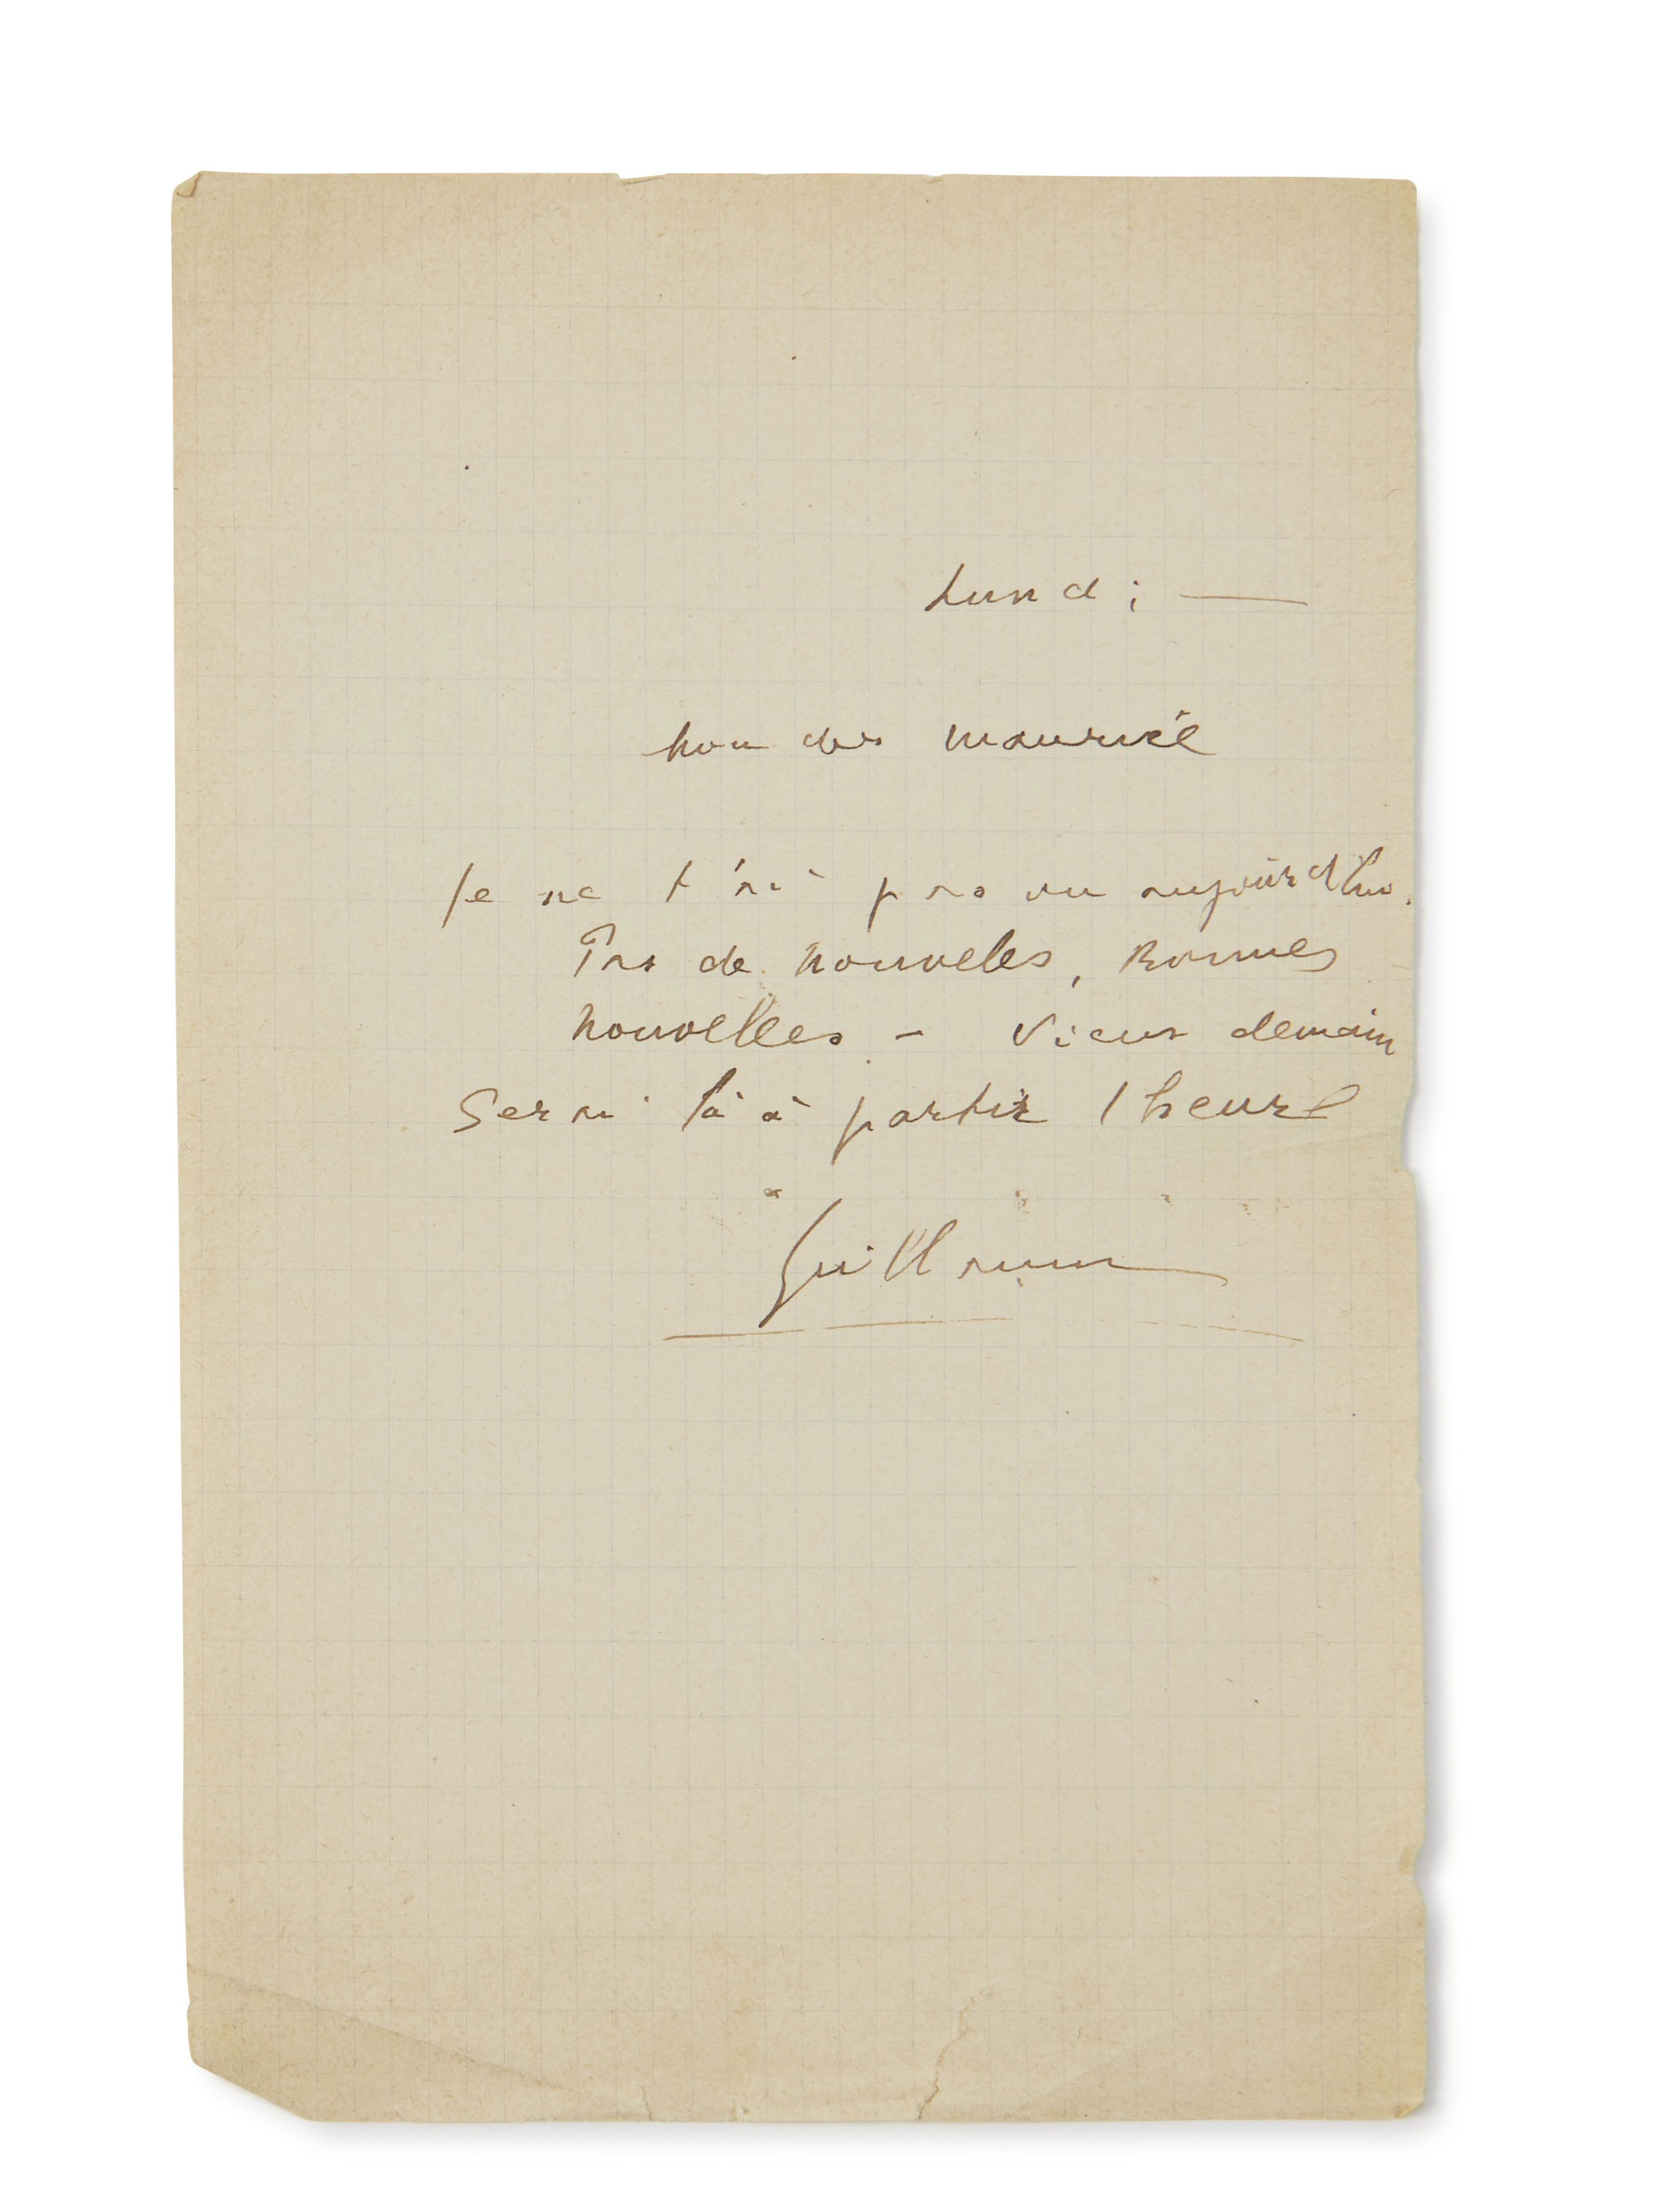 Lundi —
Mon cher Maurice
Je ne t'ai pas vu aujourd'hui.
Pas de nouvelles, Bonnes
nouvelles - Viens demain
Serai là à partir 1 heure